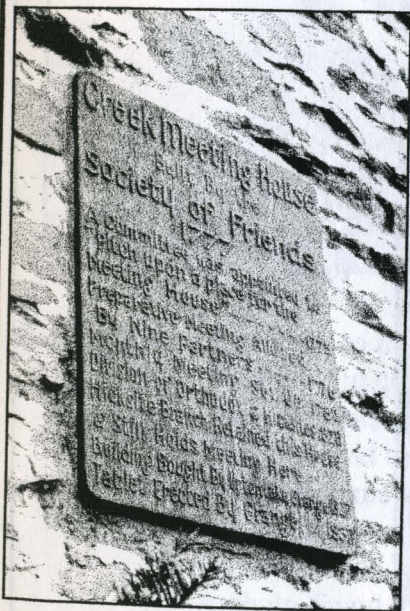 Creek Meeting House
Built By the
Society of Friends
177
A Committee was appointed to
pitch upon a place for the
Meeting House
Preparative Meeting allowed
By Nine Partners
Monthly Meeting Set up
Division of Orthodox &
Hicksite Branch Retained this House
& Still Holds Meeting Here
Building Bought By Upton Lake Grange
Tablet Erected By Grange